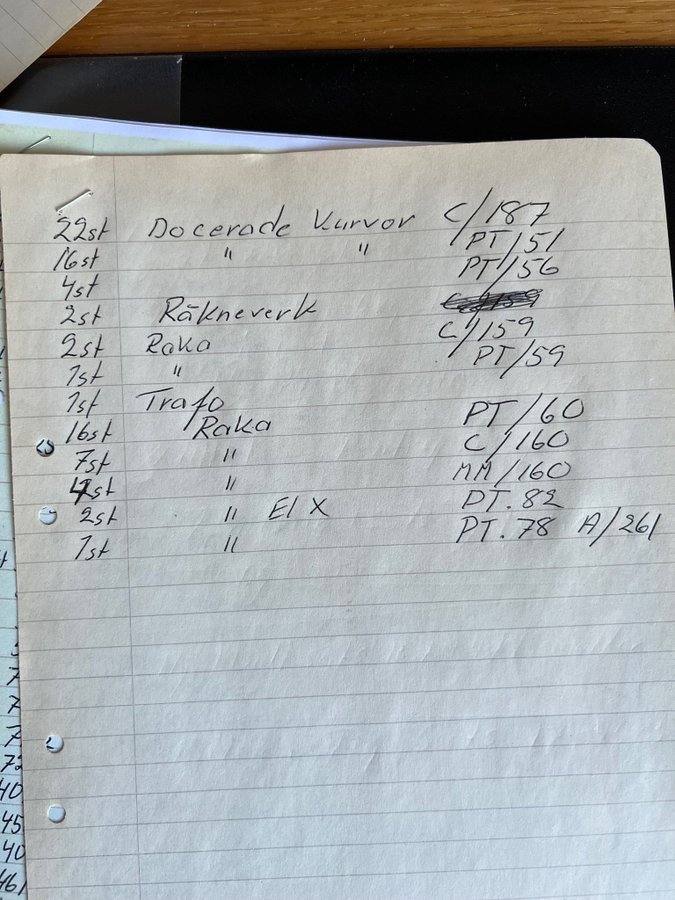 22st Docerade Kurvor C/187
16st " " PT/51
4st PT/56
2st Räkneverk
2st Raka C/159
1st " PT/59
1st Trafo
16st Raka PT/60
7st " C/160
4st " MM/160
2st " El X PT.82
1st " PT.78 A/261
72
40
45
40
461